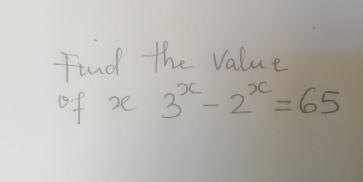 Find the Value
of x 3ˣ - 2ˣ = 65